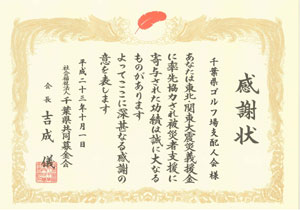 感謝状
千葉県ゴルフ場支配人会 様
あなたは東北関東大震災義援金
に率先協力され被災者支援に
寄与された功績は誠に大なる
ものがあります
よってここに深甚なる感謝の
意を表します
平成二十三年十月一日
社会福祉法人 千葉県共同募金会
会長 吉成 儀